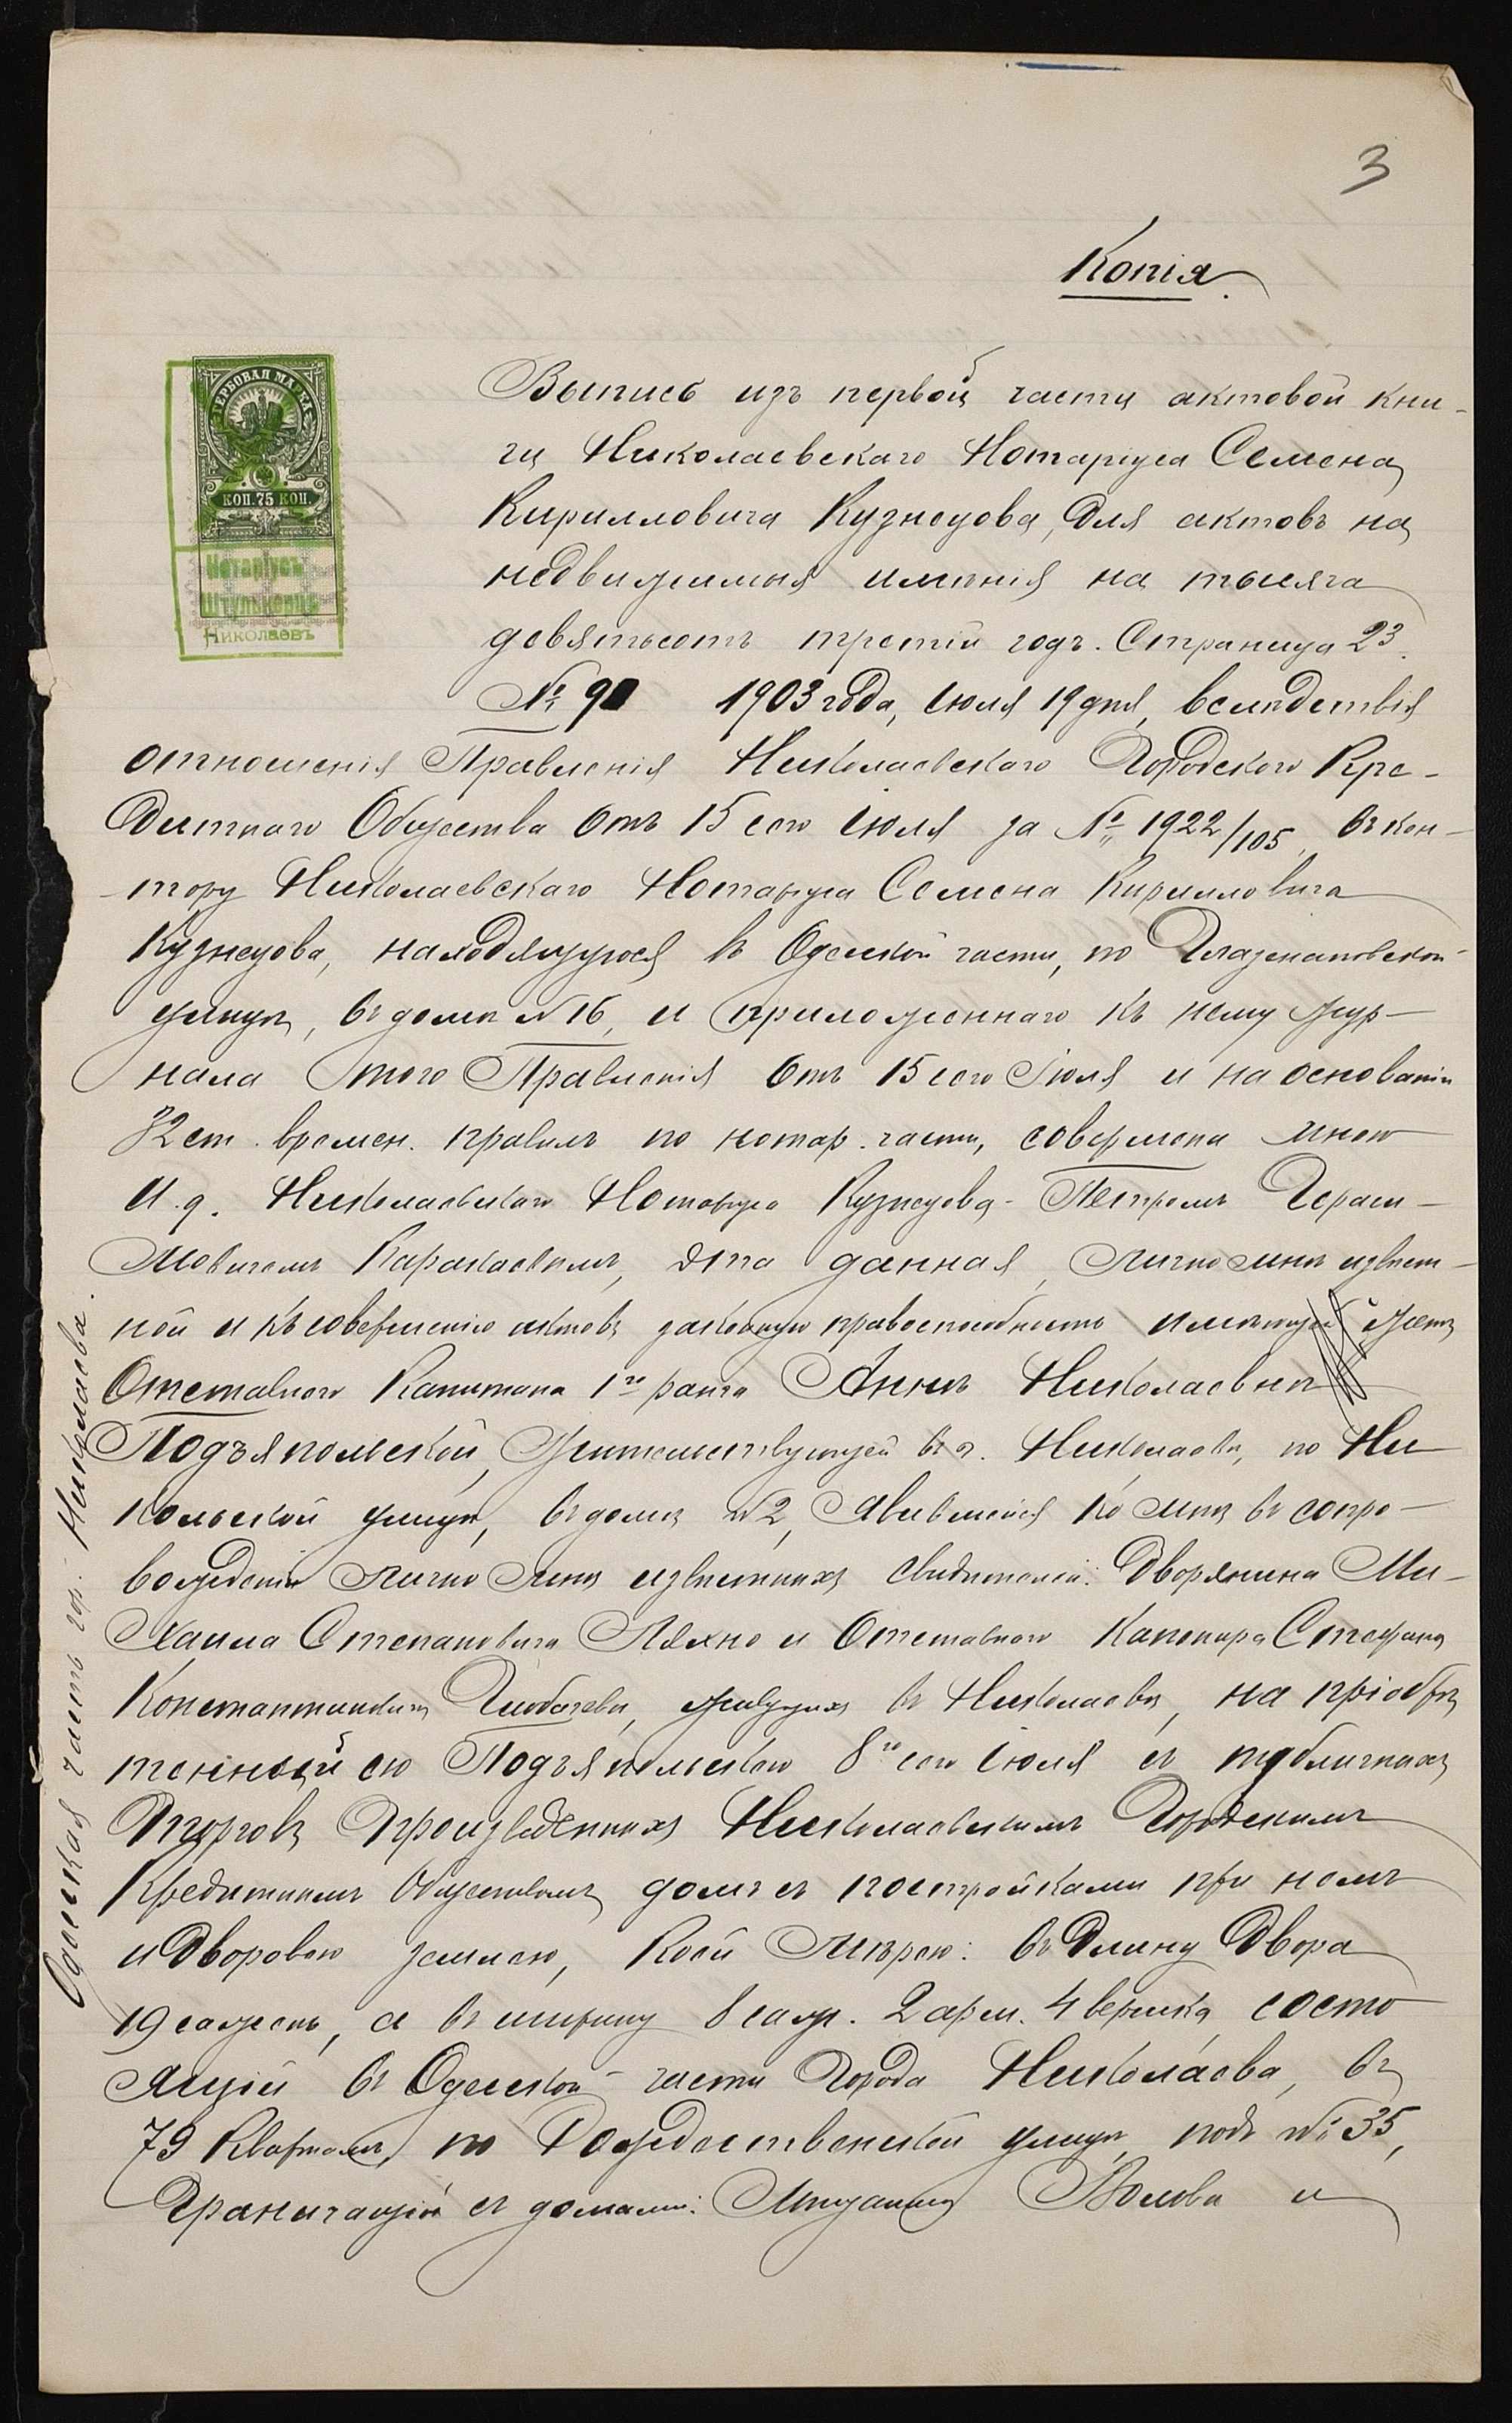 3
Копія.
ГЕРБОВАЯ МАРКА
КОП. 75 КОП.
Нотаріусъ
Штульковцъ
Николаевъ
Выпись изъ первой части актовой кни-
ги Николаевскаго Нотаріуса Семена
Кирилловича Кузнецова, для актовъ на
недвижимыя имѣнія на тысяча
девятьсотъ третій годъ. Страница 23.
№ 90 1903 года, Іюля 19 дня, вслѣдствія
отношенія Правленія Николаевскаго Городского Кре-
дитнаго Общества отъ 15 сего Іюля за № 1922/105, въ кон-
тору Николаевскаго Нотаріуса Семена Кирилловича
Кузнецова, находящуюся въ Одесской части, по Глазенаповской
улицѣ, въ домѣ №16, и приложеннаго къ нему жур-
нала того Правленія отъ 15 сего Іюля и на основаніи
32 ст. времен. правилъ по нотар. части, совершена мною
И.д. Николаевскаго Нотаріуса Кузнецова- Петромъ Гераси-
мовичемъ, эта данная, лично мнѣ извѣст-
ной и къ совершенію актовъ законную правоспособность имѣющей женѣ
Отставного Капитана 1го ранга Аннѣ Николаевнѣ
Подъяпольской, жительствующей въ г. Николаевѣ, по Ни
кольской улицѣ, въ домѣ №2, явившейся ко мнѣ въ сопро-
вожденіи лично мнѣ извѣстныхъ свидѣтелей: Дворянина Ми-
хаила Степановича Ляхно и Отставного Стефана
Константиновича, живущихъ въ Николаевѣ, на пріобрѣ
тенный ею Подъяпольскою 8го сего Іюля съ публичныхъ
торговъ произведенныхъ Николаевскимъ Городскимъ
Кредитнымъ Обществомъ домъ съ постройками при немъ
и дворовою землею, коей мѣрою: въ длину двора
19 саженъ, а въ ширину 8 саж. 2 арш. 4 вершка, состо
ящій въ Одесской части города Николаева, въ
79 Кварталѣ, по Рождественской улицѣ, подъ №35,
граничащій съ домами: Мѣщанина и
Одесская часть гор. Николаева.